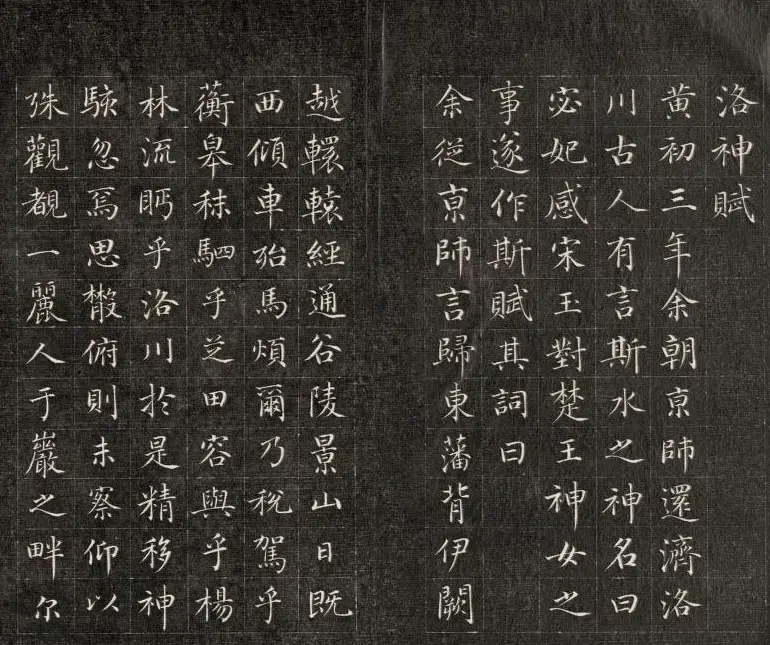 洛神賦
黃初三年余朝京師還濟洛
川古人有言斯水之神名曰
宓妃感宋玉對楚王神女之
事遂作斯賦其詞曰
余從京師言歸東藩背伊闕
越轘轅經通谷陵景山日既
西傾車殆馬煩爾乃稅駕乎
蘅皋秣駟乎芝田容與乎楊
林流眄乎洛川於是精移神
駭忽焉思散俯則未察仰以
殊觀覩一麗人于巖之畔尔